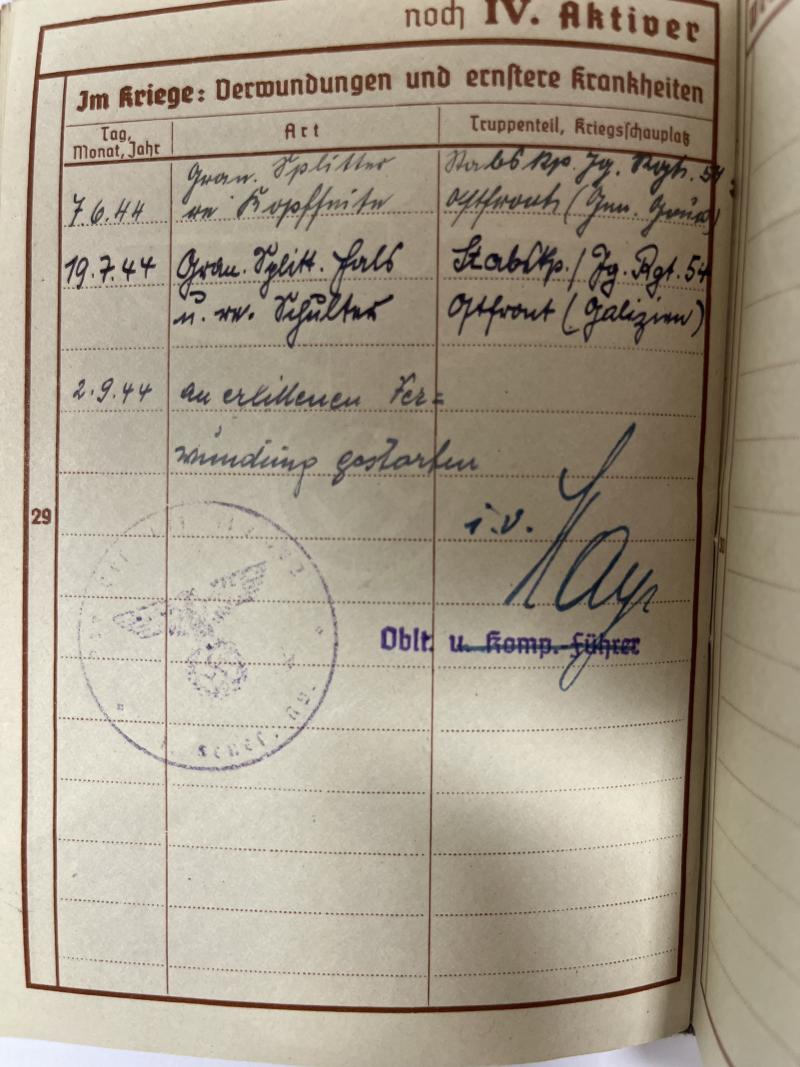 noch IV. Aktiver
Im Kriege: Verwundungen und ernstere Krankheiten
Tag, Monat, Jahr
Art
Truppenteil, Kriegsschauplatz
Gran. Splitter Stabskp. Jg. Rgt. 54
7.6.44 re Kopfseite Ostfront (
19.7.44 Gran. Splitt. Hals Stabskp./Jg. Rgt. 54
u. re. Schulter Ostfront (Galizien)
2.9.44 an erlittenen Ver=
wundung gestorben
29
i.V.
Oblt. u. Komp.-Führer